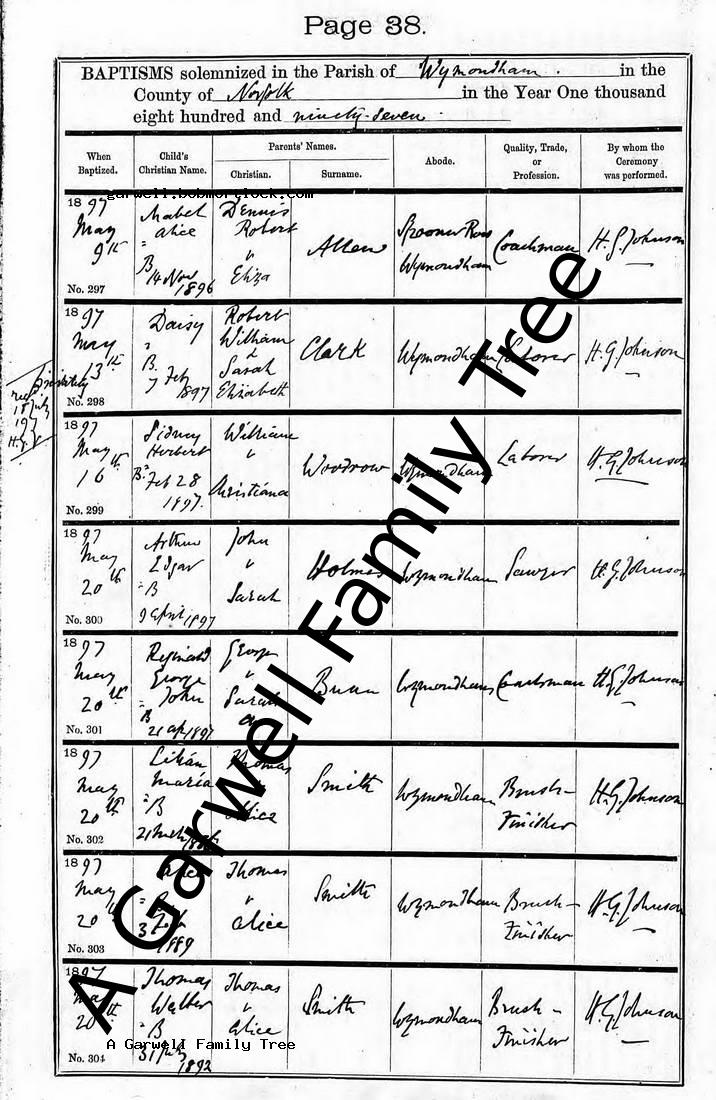 Page 38.
BAPTISMS solemnized in the Parish of Wymondham. in the
County of Norfolk in the Year One thousand
eight hundred and ninety-seven.
When Baptized.
Child's Christian Name.
Parents' Names.
Christian.
Surname.
Abode.
Quality, Trade, or Profession.
By whom the Ceremony was performed.
garwell.bobmortlock.com
1897
May
9th
No. 297
Mabel
Alice
B
14 Nov
1896
Dennis
Robert
"
Eliza
Allen
Spooner Row
Wymondham
Coachman
H. G. Johnson
1897
May
13th
No. 298
Daisy
"
B.
7 Feb
1897
Robert
William
&
Sarah
Elizabeth
Clark
Wymondham
Laborer
H. G. Johnson
Privately
18 July
197
H.G.J.
1897
May
16th
No. 299
Sidney
Herbert
Bn Feb 28
1897.
William
"
Christiana
Woodrow
Wymondham
Laborer
H. G. Johnson
1897
May
20th
No. 300
Arthur
Edgar
"B
9 April 1897
John
"
Sarah
Holmes
Wymondham
Sawyer
H. G. Johnson
1897
May
20th
No. 301
Reginald
George
John
B
21 Ap 1897
George
"
Sarah
Bunn
Wymondham
Coachman
H. G. Johnson
1897
May
20th
No. 302
Lilian
Maria
"B
21 March
Thomas
Alice
Smith
Wymondham
Brush-
Finisher
H. G. Johnson
1897
May
20th
No. 303
3 Feb
1889
Thomas
"
Alice
Smith
Wymondham
Brush-
Finisher
H. G. Johnson
1897
May
20th
No. 304
Thomas
Walter
"B
31 July
1892
Thomas
"
Alice
Smith
Wymondham
Brush-
Finisher
H. G. Johnson
A Garwell Family Tree
A Garwell Family Tree